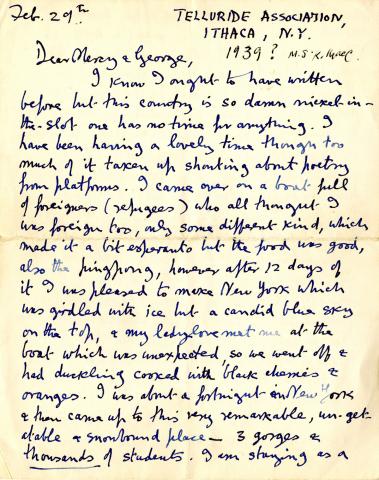 Feb. 29th TELLURIDE ASSOCIATION,
ITHACA, N.Y.
Dear Mercy & George, 1939?
I know I ought to have written
before but this country is so damn nickel-in-
the-slot one has no time for anything. I
have been having a lovely time though too
much of it taken up shouting about poetry
from platforms. I came over on a boat full
of foreigners (refugees) who all thought I
was foreign too, only some different kind, which
made it a bit esperanto but the food was good,
also the pingpong, however after 12 days of
it I was pleased to make New York which
was girdled with ice but a candid blue sky
on the top, & my ladylove met me at the
boat which was unexpected so we went off &
had duckling cooked with black cherries &
oranges. I was about a fortnight in New York
& then came up to this very remarkable, un-get-
atable & snowbound place — 3 gorges &
thousands of students. I am staying as a